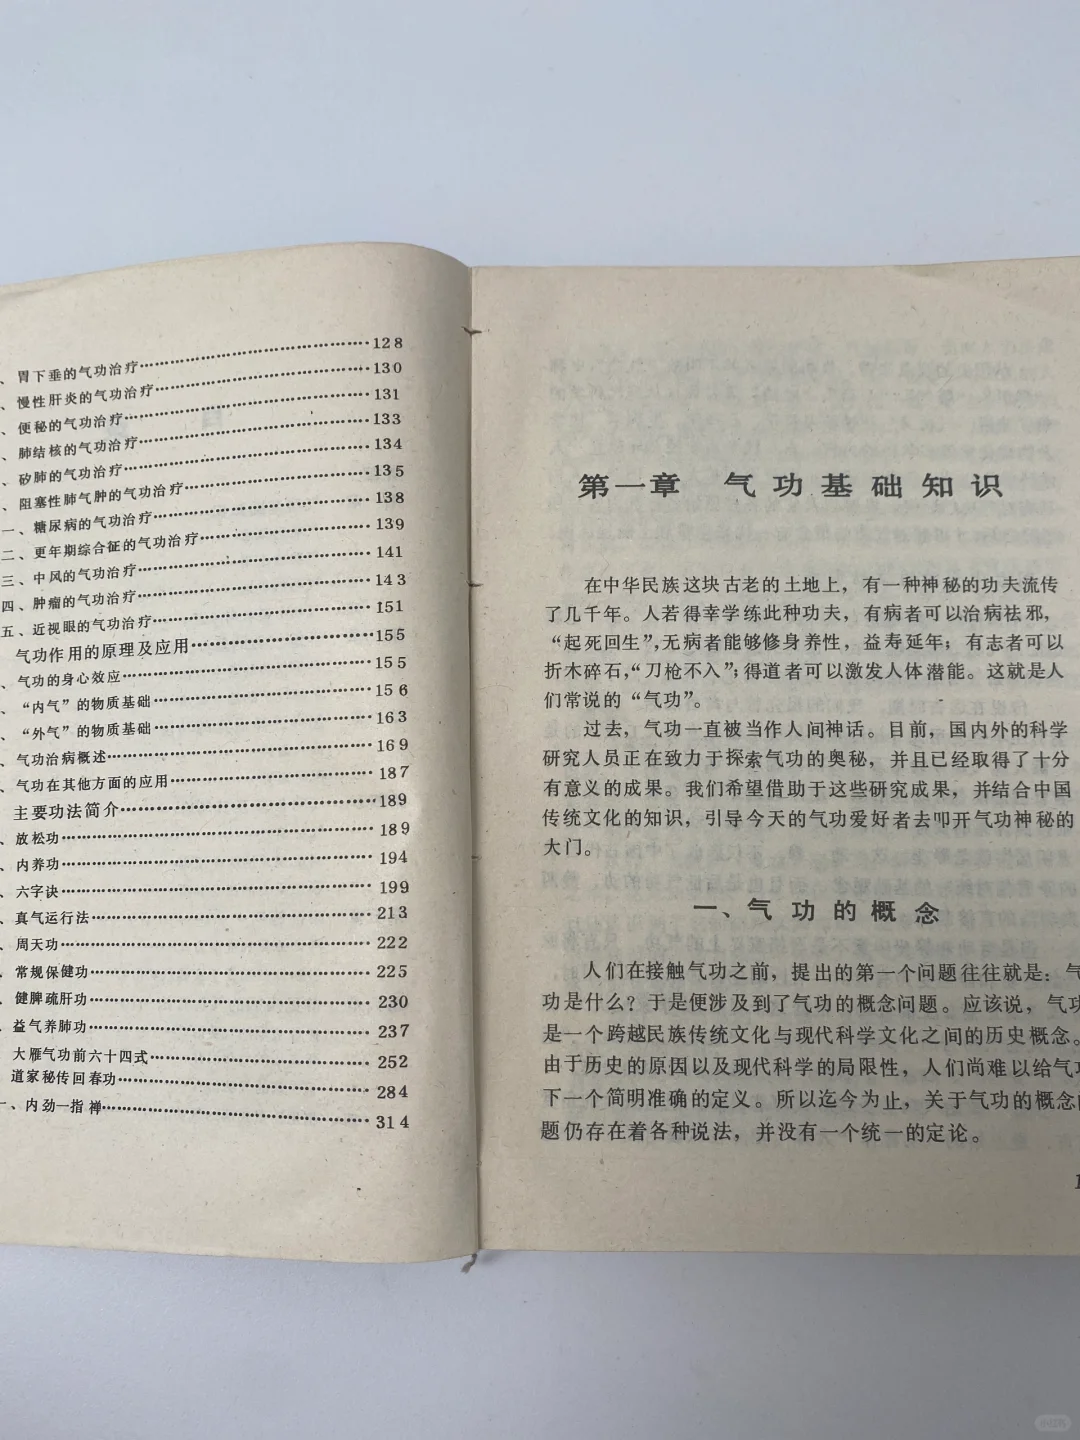 、胃下垂的气功治疗……128
、慢性肝炎的气功治疗……130
、便秘的气功治疗……131
、肺结核的气功治疗……133
、矽肺的气功治疗……134
、阻塞性肺气肿的气功治疗……135
一、糖尿病的气功治疗……138
二、更年期综合征的气功治疗……139
三、中风的气功治疗……141
四、肿瘤的气功治疗……143
五、近视眼的气功治疗……151
气功作用的原理及应用……155
、气功的身心效应……155
、“内气”的物质基础……156
、“外气”的物质基础……163
、气功治病概述……169
、气功在其他方面的应用……187
主要功法简介……189
、放松功……189
、内养功……194
、六字诀……199
、真气运行法……213
、周天功……222
、常规保健功……225
、健脾疏肝功……230
、益气养肺功……237
大雁气功前六十四式……252
道家秘传回春功……284
一、内劲一指禅……314
第一章 气功基础知识
在中华民族这块古老的土地上，有一种神秘的功夫流传
了几千年。人若得幸学练此种功夫，有病者可以治病祛邪，
“起死回生”，无病者能够修身养性，益寿延年；有志者可以
折木碎石，“刀枪不入”；得道者可以激发人体潜能。这就是人
们常说的“气功”。
过去，气功一直被当作人间神话。目前，国内外的科学
研究人员正在致力于探索气功的奥秘，并且已经取得了十分
有意义的成果。我们希望借助于这些研究成果，并结合中国
传统文化的知识，引导今天的气功爱好者去叩开气功神秘的
大门。
一、气功的概念
人们在接触气功之前，提出的第一个问题往往就是：气
功是什么？于是便涉及到了气功的概念问题。应该说，气功
是一个跨越民族传统文化与现代科学文化之间的历史概念。
由于历史的原因以及现代科学的局限性，人们尚难以给气功
下一个简明准确的定义。所以迄今为止，关于气功的概念
题仍存在着各种说法，并没有一个统一的定论。
1
小红书